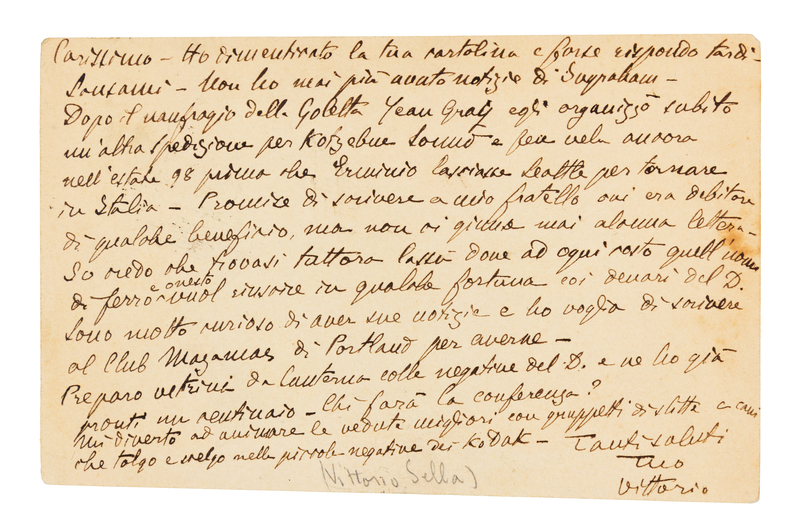 Carissimo – Ho dimenticato la tua cartolina e forse rispondo tardi –
Scusami – Non ho mai più avuto notizie di Ingraham –
Dopo il naufragio della Goletta Jean Gray egli organizzò subito
un'altra spedizione per Kotzebue Sound e fece vela ancora
nell'estate 98 prima che Erminio lasciasse Seattle per tornare
in Italia – Promise di scrivere a mio fratello cui era debitore
di qualche beneficio, ma non ci giunse mai alcuna lettera –
Io credo che trovasi tuttora lassù dove ad ogni costo quell'uomo
di ferro e onesto vuol riuscire in qualche fortuna coi denari del D.
Sono molto curioso di aver sue notizie e ho voglia di scrivere
al Club Mazamas di Portland per averne –
Preparo vetrini da lanterna colle negative del D. e ne ho già
pronti un centinaio – Chi farà la conferenza?
Mi diverto ad animare le vedute migliori con gruppetti di slitte a cani
che tolgo e scelgo nelle piccole negative dei Kodak – Tanti saluti
Tuo
Vittorio
(Vittorio Sella)